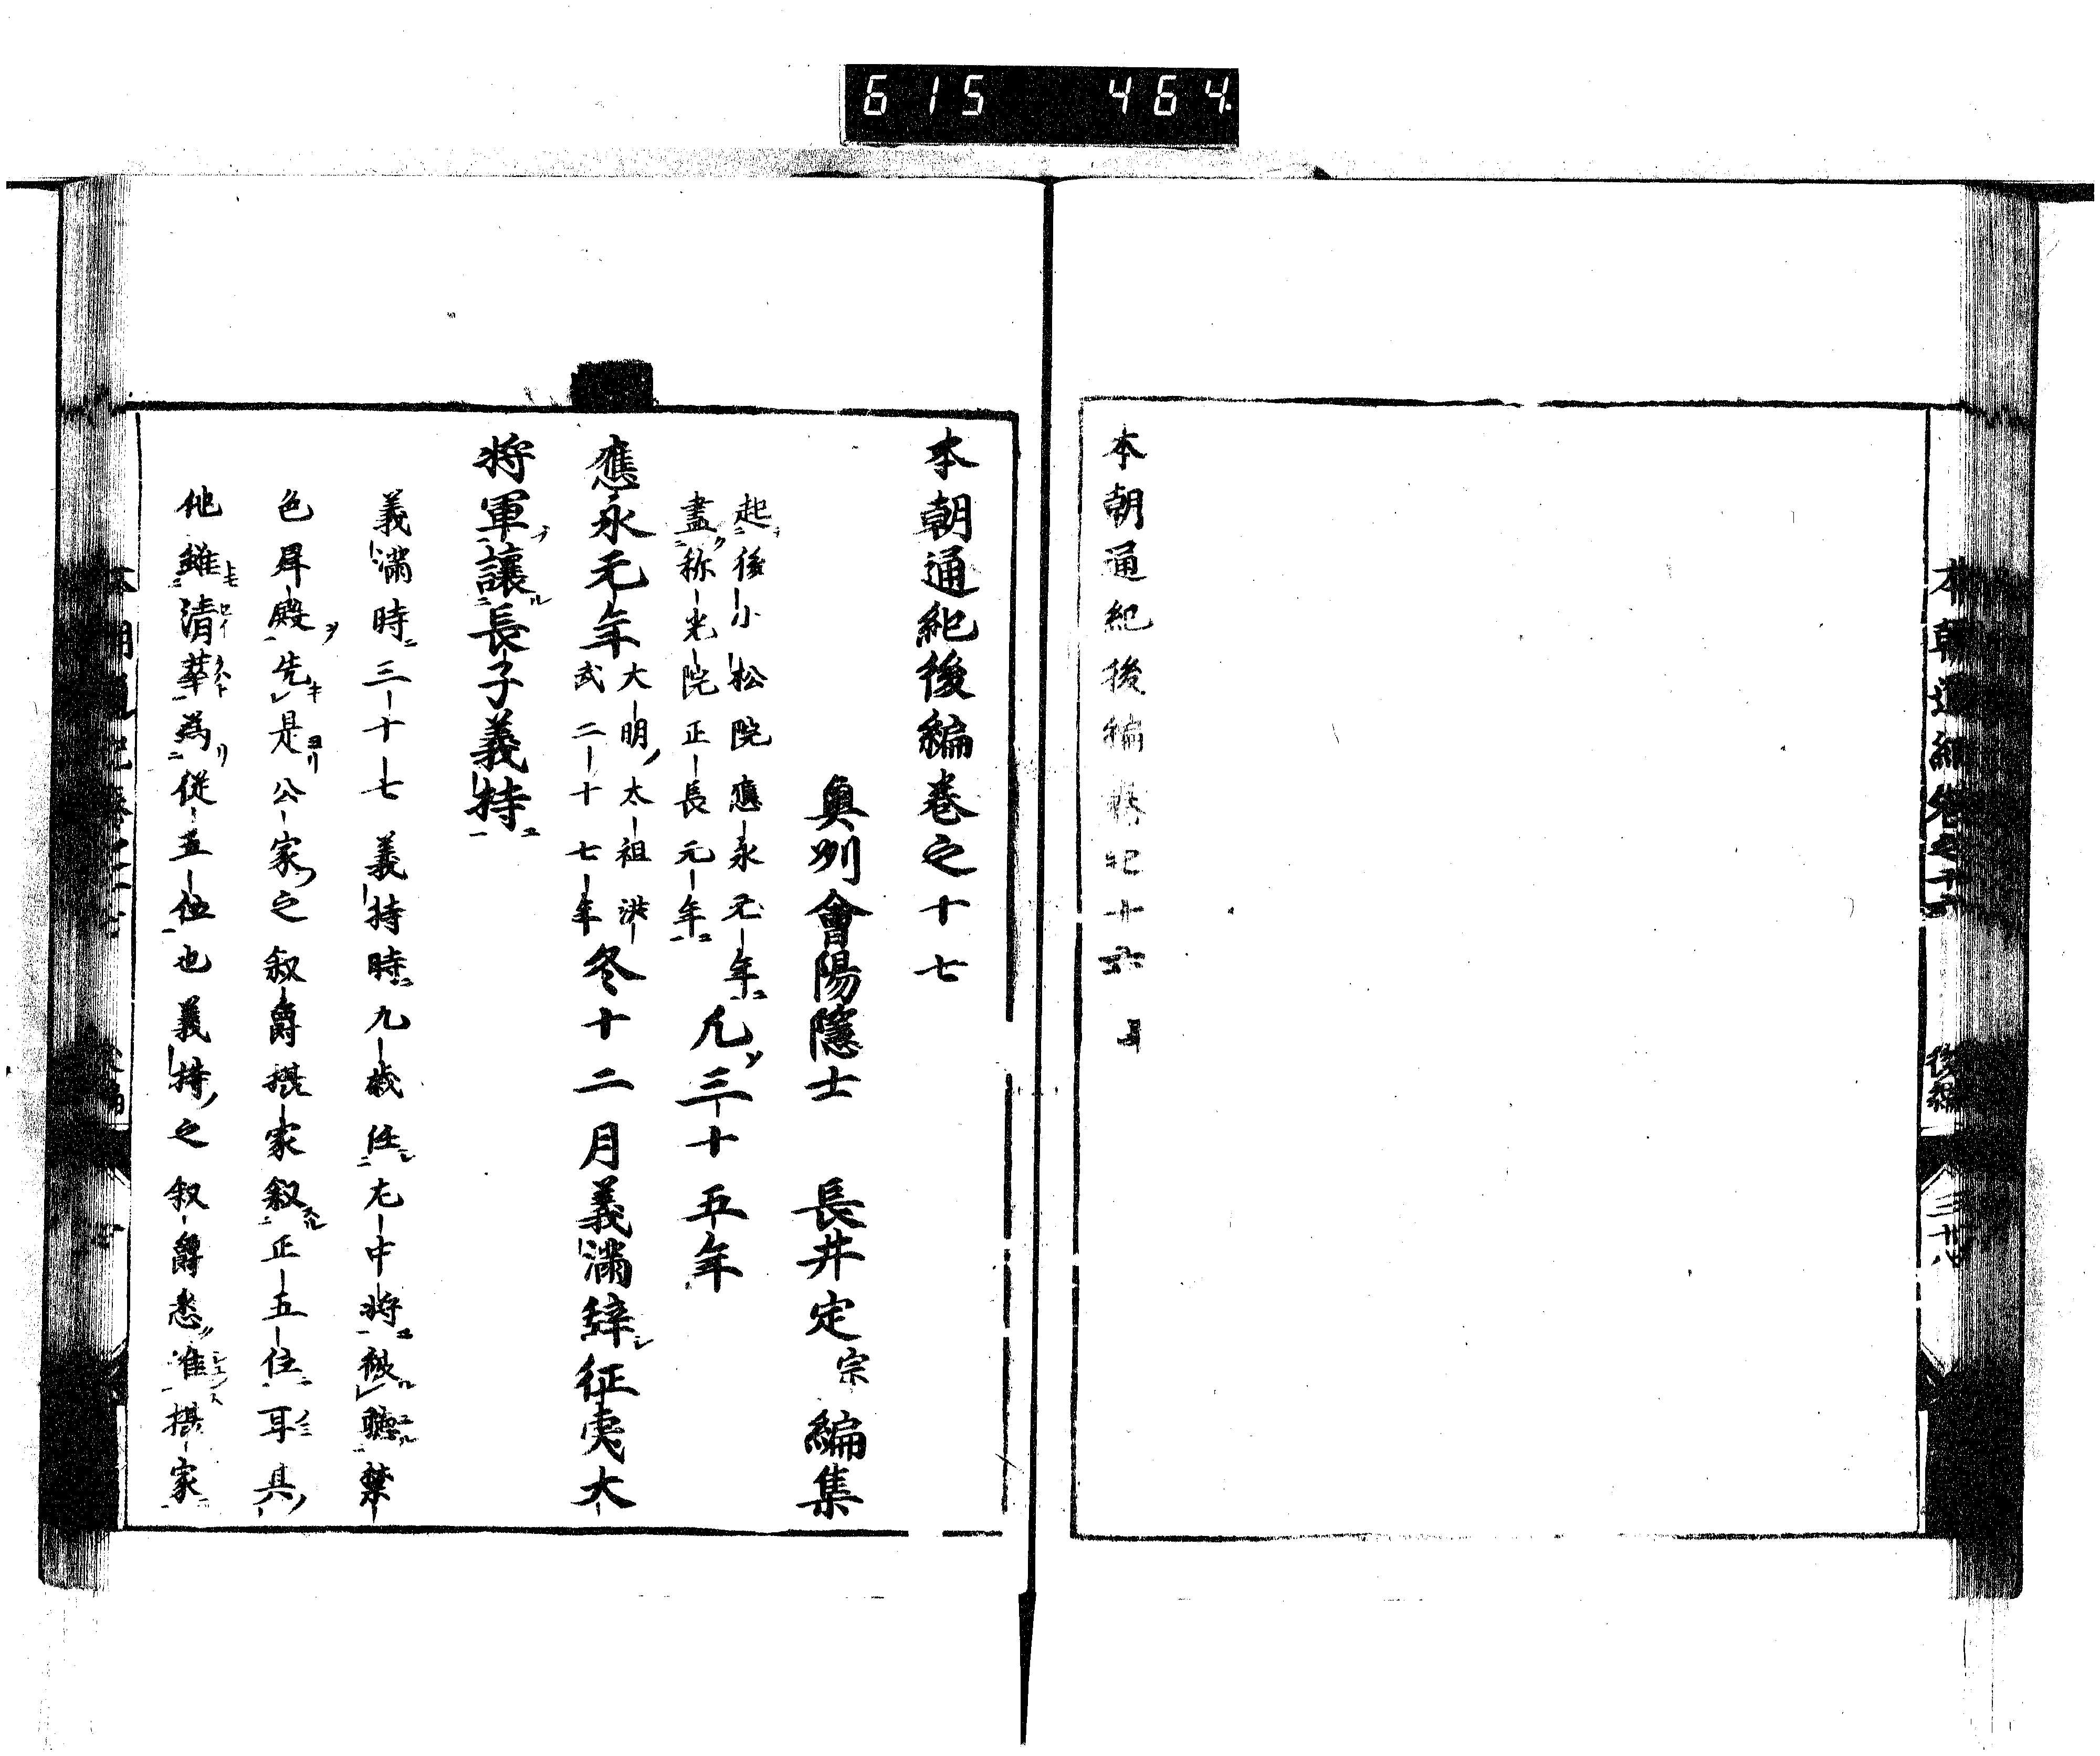 615 464
本朝通紀卷之十六 後編 三十八
本朝通紀後編卷之十六
本朝通紀後編卷之十七
奥州會陽隱士 長井定宗編集
起後小松院應永元年
盡称光院正長元年
凡三十五年
應永元年
大明太祖洪
武二十七年
冬十二月義滿辞征夷大
將軍讓長子義持
義滿時三十七義持時九歳任左中將被聽禁
色昇殿先是公家之叙爵摂家叙正五位耳其
他雖清華為從五位也義持之叙爵悉准摂家